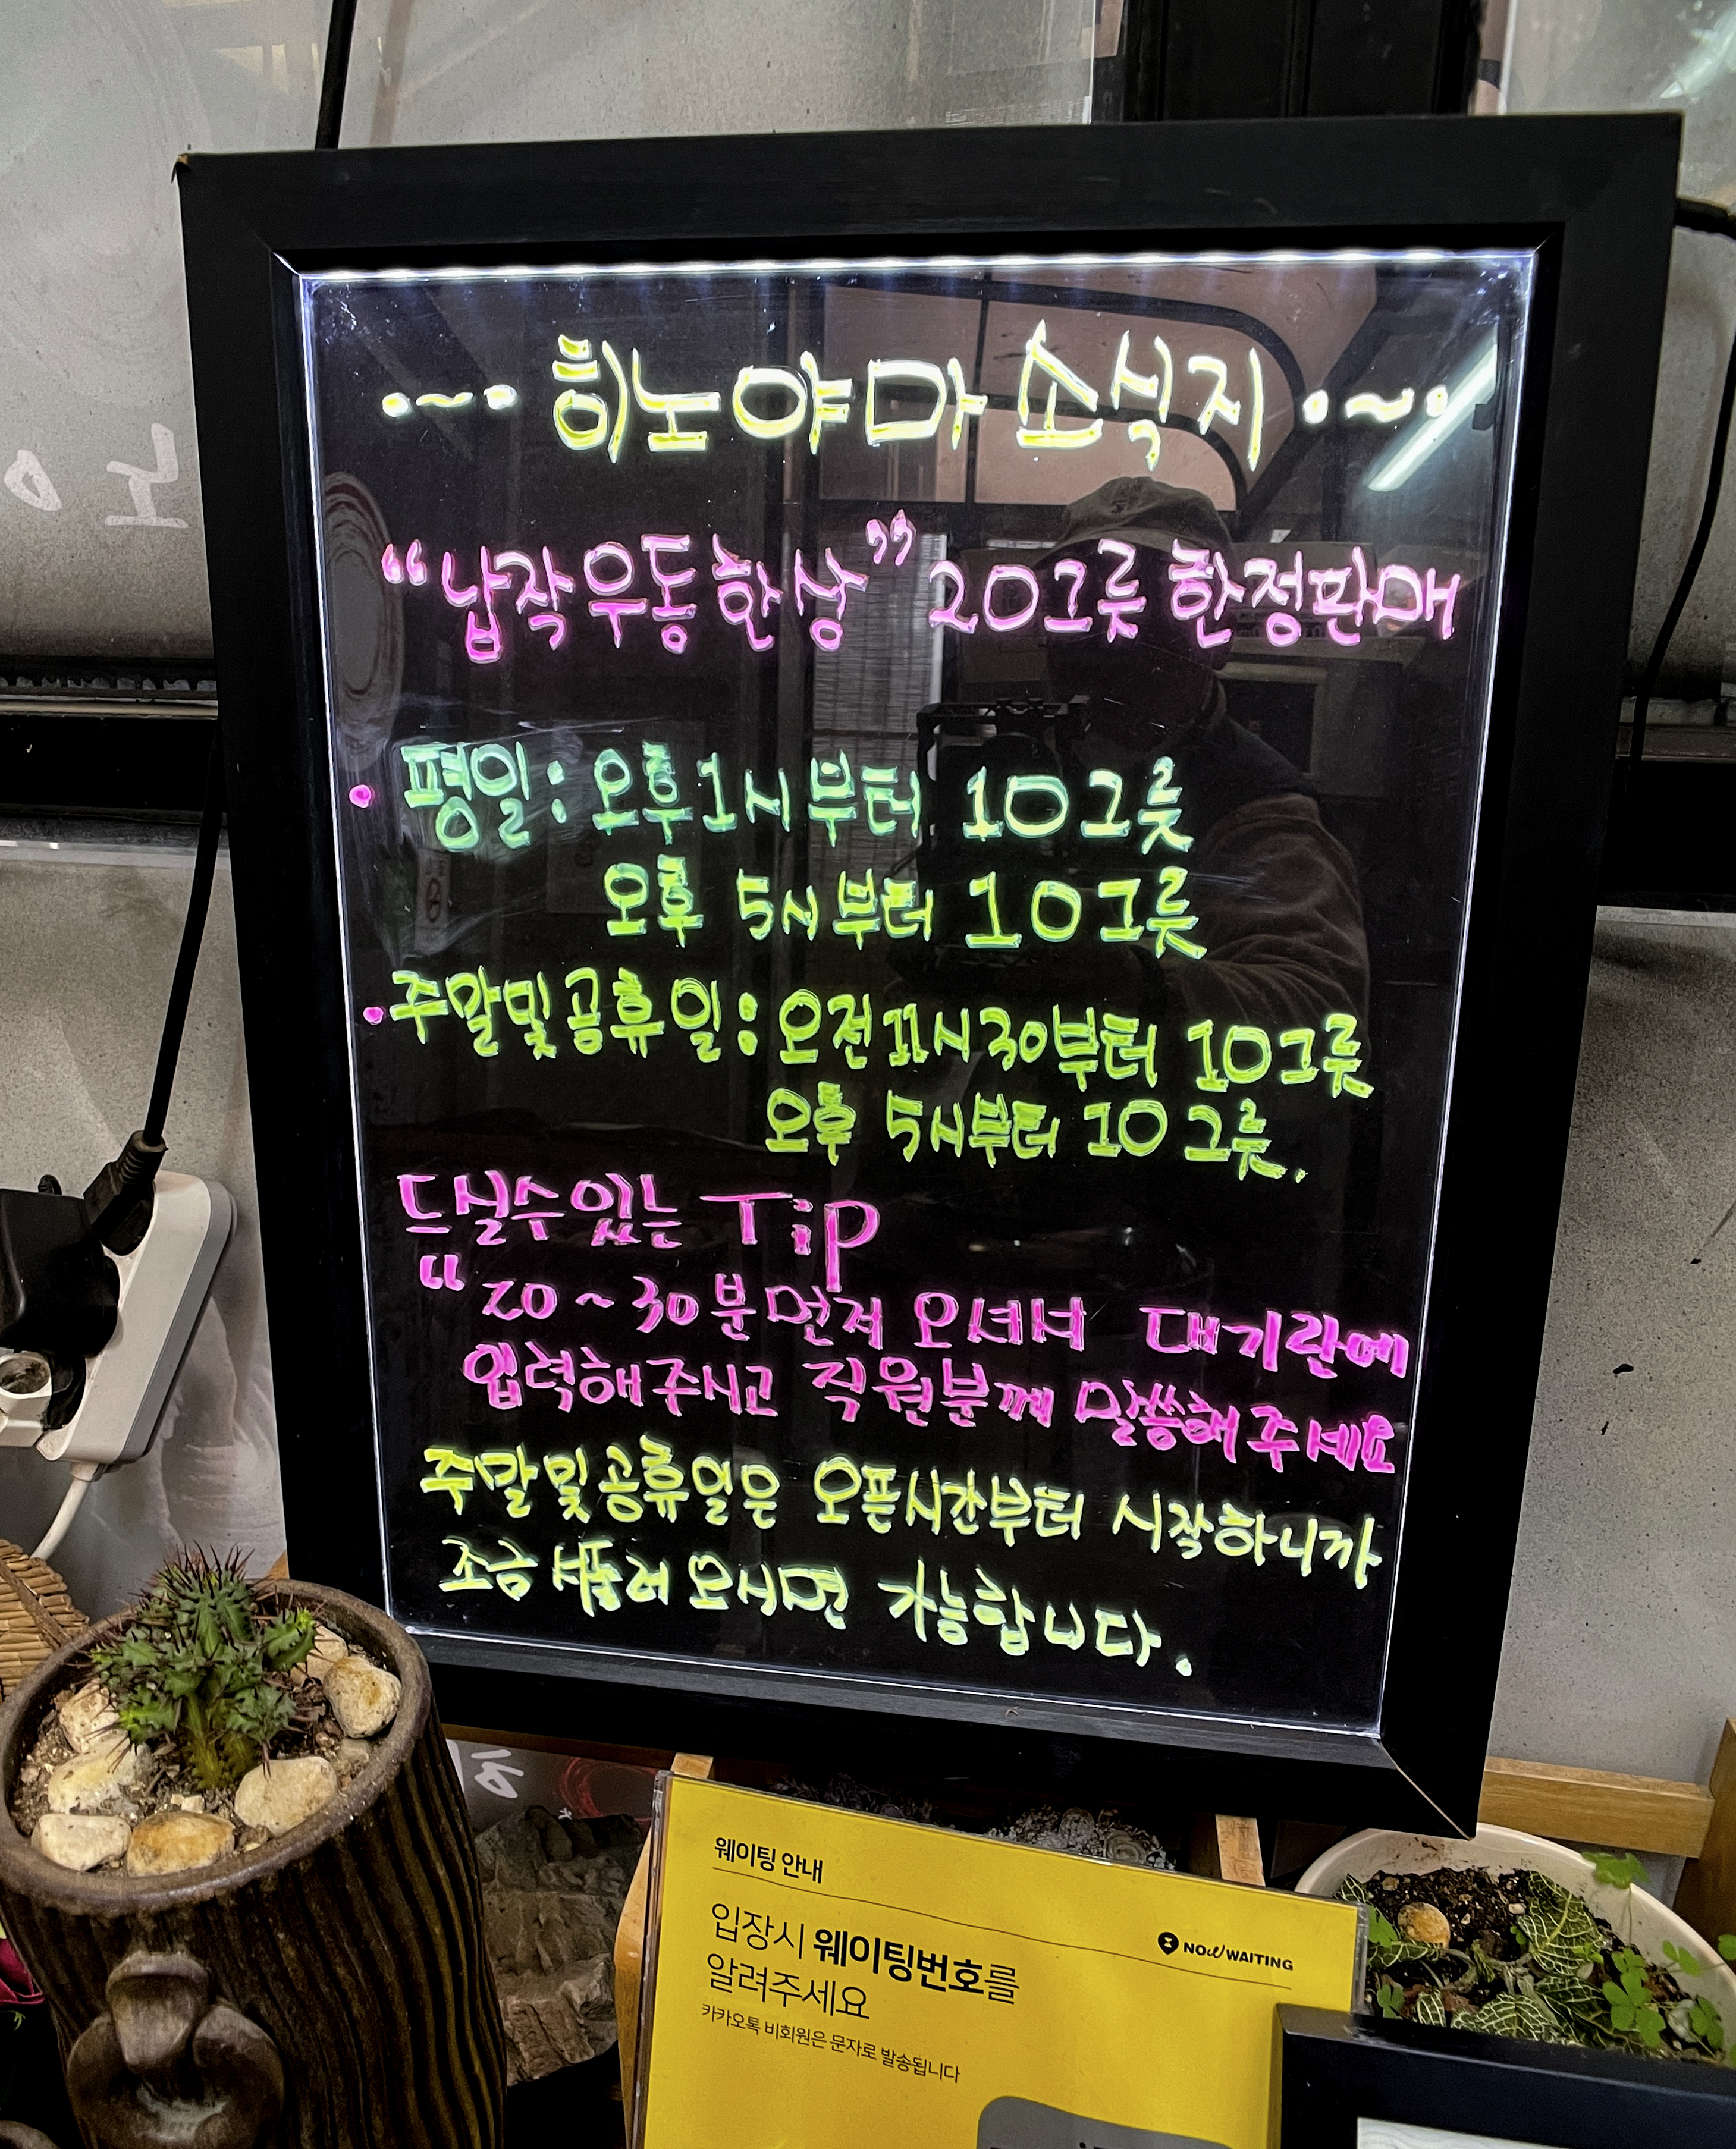 ·~· 히노야마 소식지 ·~·
“납작우동한상” 20그릇 한정판매
· 평일: 오후1시부터 10그릇
오후 5시부터 10그릇
· 주말및공휴일: 오전11시30부터 10그릇
오후 5시부터 10그릇.
드실수있는 Tip
“20~30분먼저 오셔서 대기란에
입력해주시고 직원분께 말씀해주세요
주말및공휴일은 오픈시간부터 시작하니까
조금 서둘러 오시면 가능합니다.
웨이팅 안내
입장시 웨이팅번호를
알려주세요
NOW WAITING
카카오톡 비회원은 문자로 발송됩니다